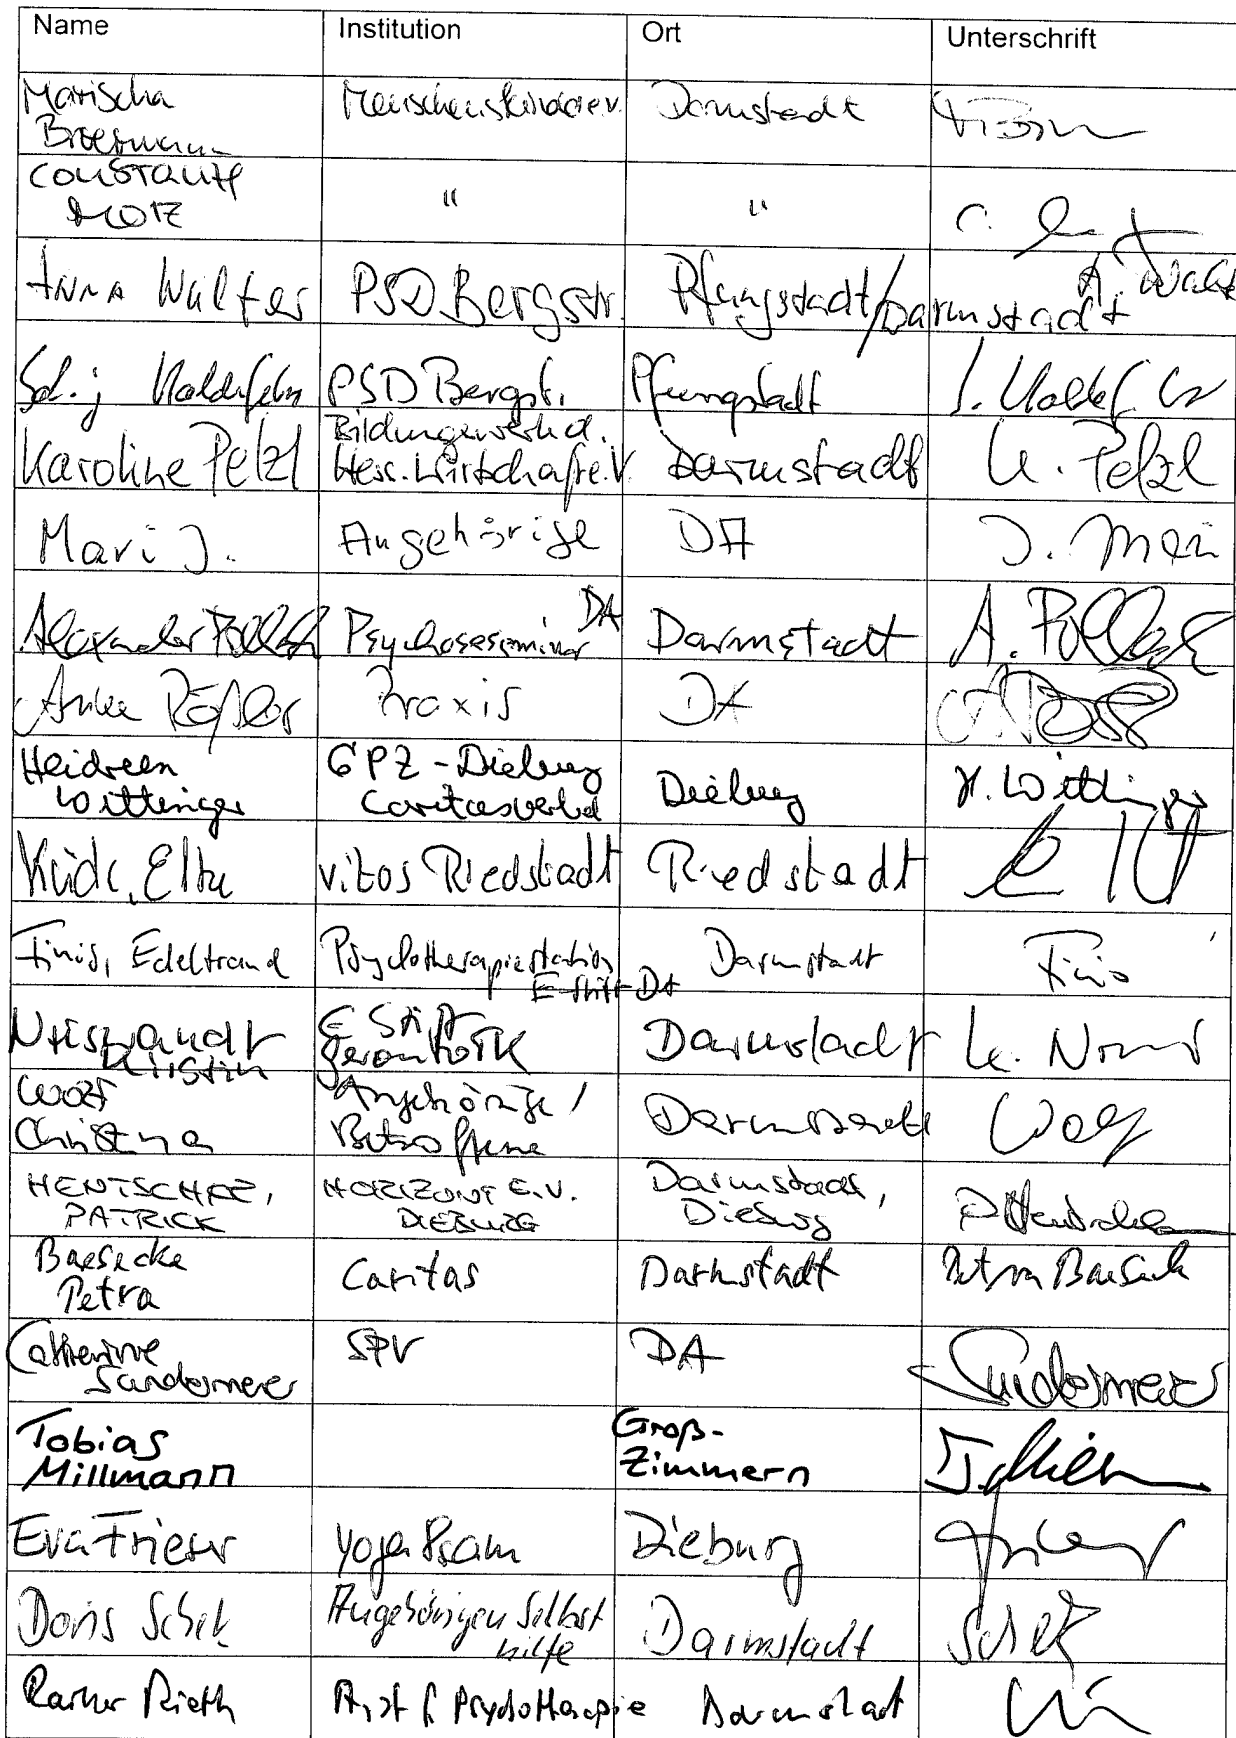 Name Institution Ort Unterschrift
Marischa Menschenskinder e.V. Darmstadt
Constanze " "
Motz
Anna Walter PSD Bergstr. Pfungstadt/Darmstadt A. Walt
PSD Bergstr. Pfungstadt
Karoline Pelzl Bildungswerk d. Hess. Wirtschaft e.V. Darmstadt K. Pelzl
Mari J. Angehörige DA J. Mari
Alexander Pollak Psychoseseminar DA Darmstadt A. Pollak
Anke Rößler Praxis DA
Heidreen Wittinger GPZ - Dieburg Caritasverbd Dieburg H. Wittinger
Elke vitos Riedstadt Riedstadt
Finis, Edeltraud Psychotherapiestation E-Stift DA Darmstadt Finis
Kirstin E Stift Darmstadt
Wolf Christina Angehörige / Betroffene Darmstadt Wolf
HENTSCHEL, PATRICK HORIZONT E.V. DIEBURG Darmstadt, Dieburg P. Hentschel
Baesecke Petra Caritas Darmstadt Petra Baesecke
Catherine Sandermeier SPV DA Sandermeier
Tobias Millmann Groß-Zimmern
Eva Frieser Dieburg
Doris Angehörigen Selbst hilfe Darmstadt
Rainer Rieth Arzt f. Psychotherapie Darmstadt